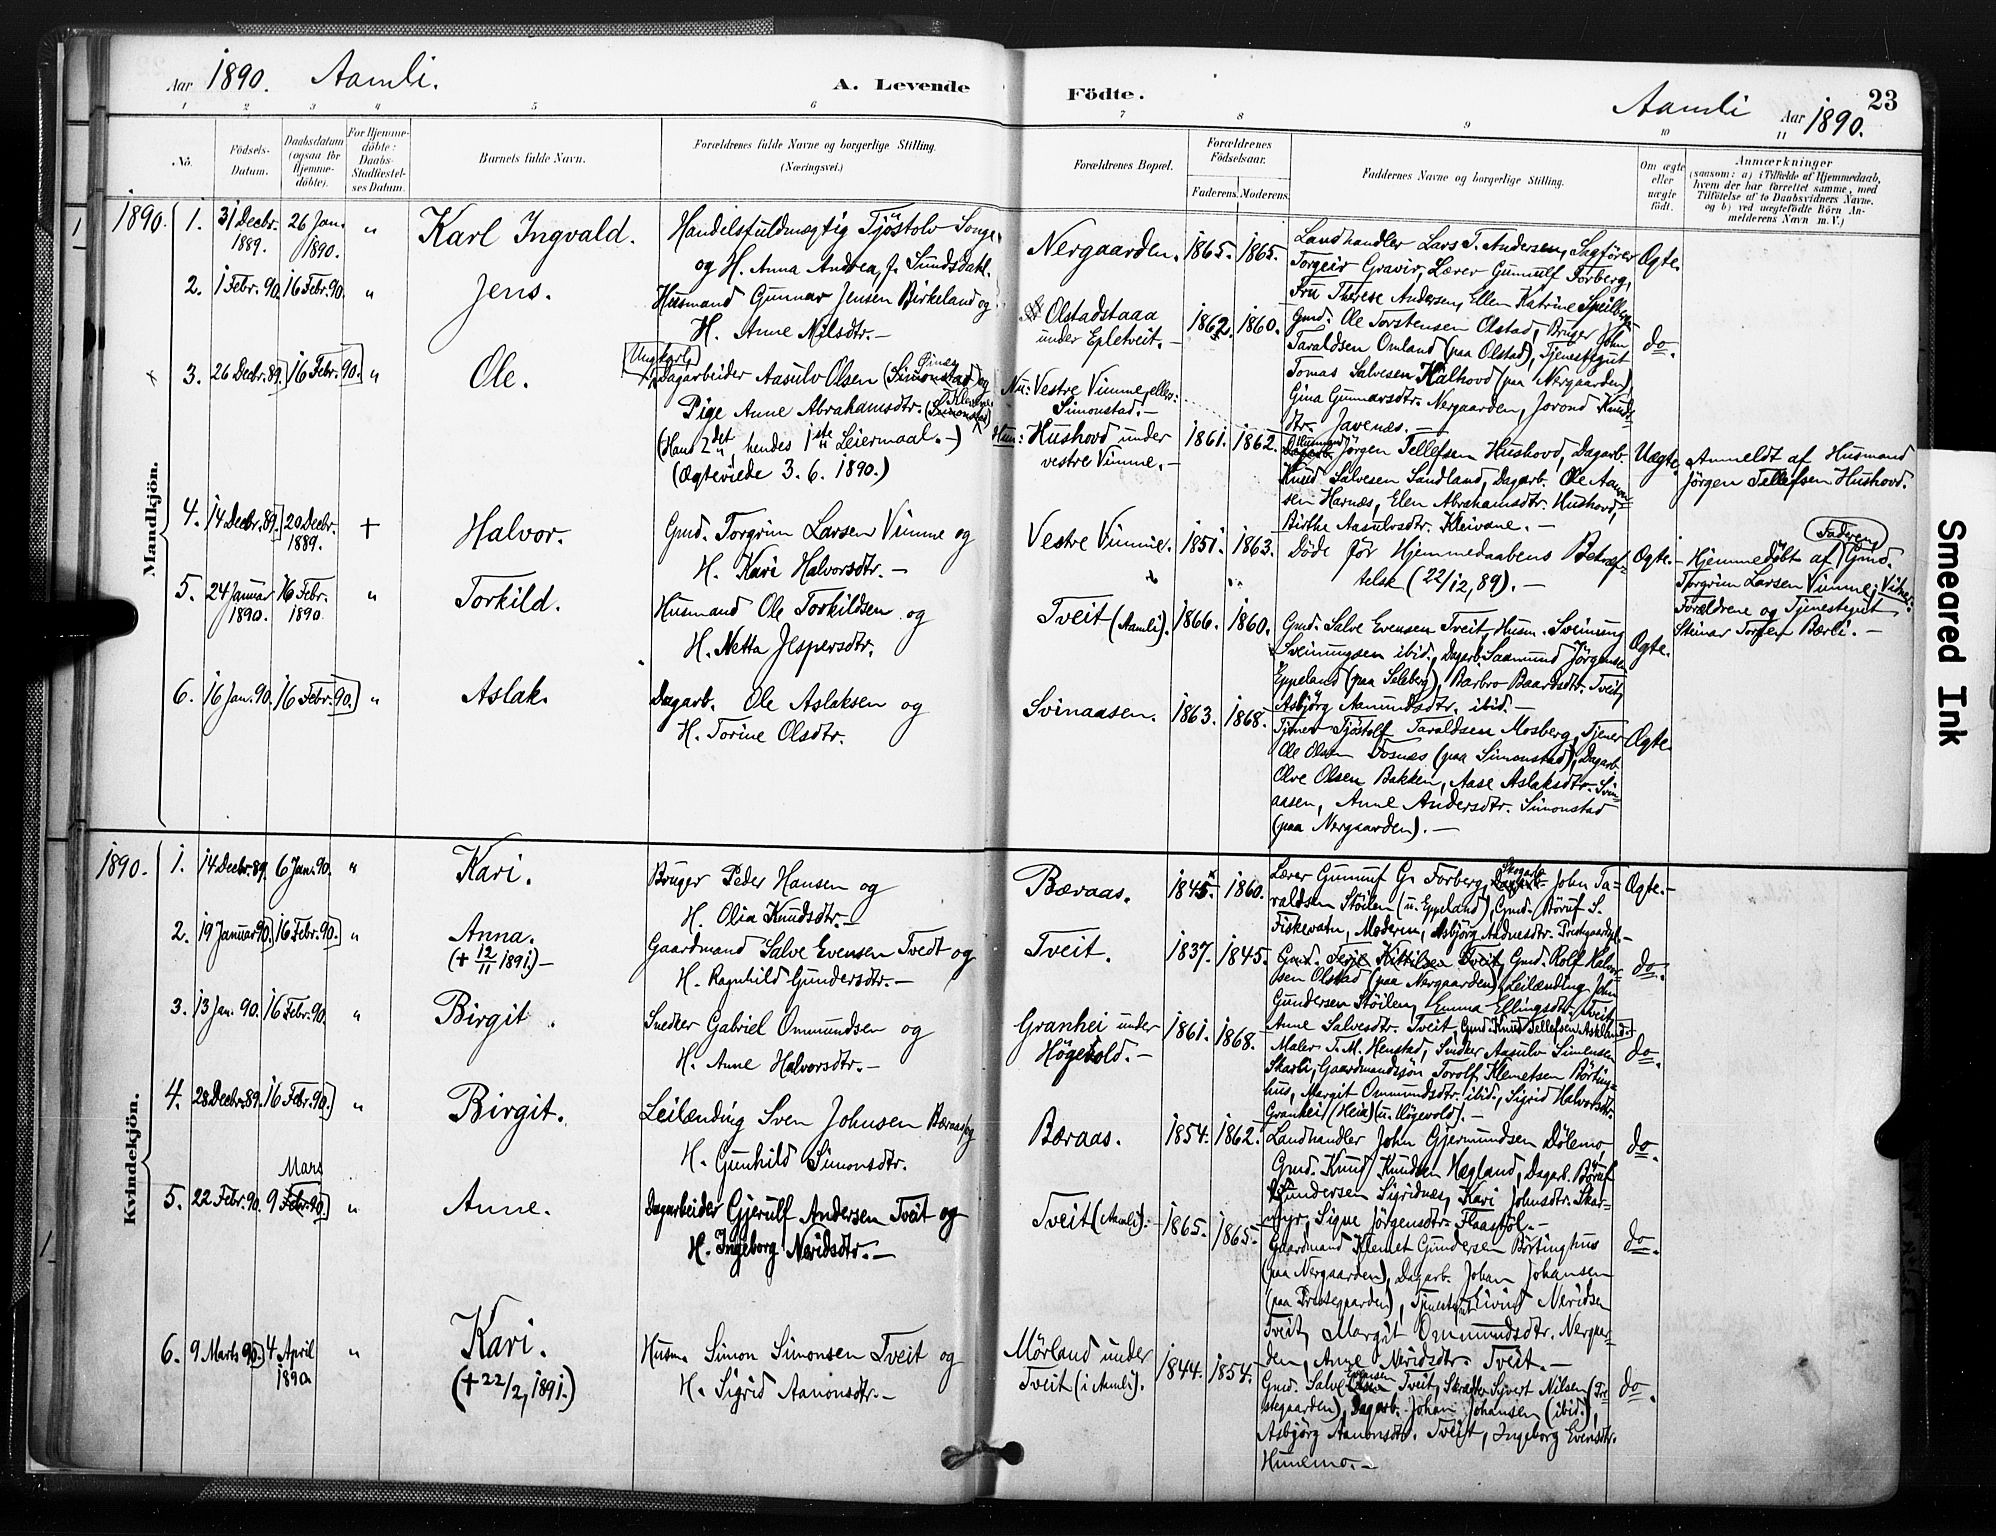 Aar 1890. Aamli.
A. Levende
Födte.
Aamli
Aar 1890.
23
1 2 3 4 5 6 7 8 9 10 11
No.
Födsels-
Datum.
Daabsdatum
(ogsaa for
Hjemme-
döbte).
For Hjemme-
döbte:
Daabs-
Stadfæstel-
ses Datum.
Barnets fulde Navn.
Forældrenes fulde Navne og borgerlige Stilling.
(Næringsvei.)
Forældrenes Bopæl.
Forældrenes
Födselsaar.
Faderens. Moderens.
Faddernes Navne og borgerlige Stilling.
Om ægte
eller
uægte
födt.
Anmærkninger
(saasom: a) i Tilfælde af Hjemmedaab,
hvem der har forrettet samme, med
Tilföielse af to Daabsvidners Navne.
og b) ved uægtefödte Börn An-
melderens Navn m. V.)
Mandkjön.
1890.
1. 31 Decbr. 1889. 26 Jan. 1890. " Karl Ingvald.
Handelsfuldmægtig Tjöstolv Songe
og H. Anna Andrea, f. Sundsdahl.
Nergaarden. 1865. 1865.
Landhandler Lars T. Andersen, Sagförer
Torgeir Gravir, Lærer Gunnulf Forberg,
Fru Therese Andersen, Ellen Katrine
Ægte.
2. 1 Febr. 90. 16 Febr. 90. " Jens.
Husmand Gunnar Jensen Birkeland og
H. Anne Nilsdtr. —
Olstadstaaa
under Epletveit. —
1862. 1860.
Gmd. Ole Torstensen Olstad, Bruger John
Taraldsen Omland (paa Olstad), Tjenestegut
Tomas Salvesen Kålhovd (paa Nergaarden),
Gina Gunnarsdtr. Nergaarden, Jorond Knuds-
dtr. Javenæs. —
do.
3. 26 Decbr. 89. 16 Febr. 90. " Ole.
Ungkarl
Dagarbeider Aasulv Olsen (Simonstad) og
Pige Anne Abrahamsdtr. (Simonstad)
(Hans 2det, hendes 1ste Leiermaal. —)
(Ægteviede 3. 6. 1890.)
Nu: Vestre Vimme, ellers:
Simonstad. —
Hun: Hushovd under
vestre Vimme. —
1861. 1862.
Husmand
Dagarb. Jörgen Tellefsen Hushovd, Dagarb.
Knud Salvesen Sandland, Dagarb. Ole Aanon-
sen Harnæs, Elen Abrahamsdtr. Hushovd,
Birthe Aasulvsdtr. Kleivane. —
Uægte.
Anmeldt af Husmand
Jörgen Tellefsen Hushovd.
4. 14 Decbr. 89. 20 Decbr. 1889. + Halvor.
Gmd. Torgrim Larsen Vimme og
H. Kari Halvorsdtr. —
Vestre Vimme. 1851. 1863.
Döde för Hjemmedaabens Bekræf-
telse (22/12, 89). —
Ægte. —
Faderen
Hjemmedöbt af Gmd.
Torgrim Larsen Vimme; Vidner:
Forældrene og Tjenestegut
Steinar Torsen Bærli. —
5. 24 Januar 1890. 16 Febr. 1890. " Torkild.
Husmand Ole Torkildsen og
H. Netta Jespersdtr.
Tveit (Aamli). 1866. 1860.
Gmd. Salve Evensen Tveit, Husm. Sveinung
Sveinungsen ibid., Dagarb. Saamund Jörgensen
Eppeland (paa Seleberg), Barbro Baardsdtr. Tveit,
Asbjörg Aamundsdtr. ibid. —
Ægte.
6. 16 Jan. 90. 16 Febr. 90. " Aslak.
Dagarb. Ole Aslaksen og
H. Torine Olsdtr.
Svinaasen. 1863. 1868.
Tjener Tjöstolf Taraldsen Mosberg, Tjener
Ole Olsen Fosnæs (paa Simonstad), Dagarb.
Olve Olsen Bakken, Aase Aslaksdtr. Svin-
aasen, Anne Andersdtr. Simonstad
(paa Nergaarden). —
Ægte.
Kvindekjön.
1890.
1. 14 Decbr. 89. 6 Jan. 90. " Kari.
Bruger Peder Hansen og
H. Olia Knudsdtr. —
Bæraas. 1845. 1860.
Lærer Gunnuf G. Forberg, Skogarb. John Ta-
raldsen Stöilen (u. Eppeland), Gmd. Böruf S.
Fiskevatn, Moderen, Asbjörg
Ægte. —
2. 19 Januar 90. 16 Febr. 90. " Anna.
(+ 12/11 1891.) —
Gaardmand Salve Evensen Tvedt og
H. Ragnhild Gundersdtr. —
Tveit. 1837. 1845.
Gmd. Terje Kittilsen Tveit, Gmd. Rolf Halvor-
sen Olstad (paa Nergaarden), Leilænding John
Gundersen Stöilen, Emma Ellingsdtr. Tveit,
Anne Salvesdtr. Tveit,
do.
3. 13 Jan. 90. 16 Febr. 90. " Birgit.
Snedker Gabriel Ommundsen og
H. Anne Halvorsdtr. —
Granhei under
Högevold. —
1861. 1868.
Gmd. Knud Tellefsen Askland.
Maler T. M. Henstad, Snedker Aasulv Simensen
Skarli, Gaardmandssön Torolf Klemetsen Börting-
hus, Margit Ommundsdtr. ibid., Sigrid Halvorsdtr.
Granhei (Heia) (u. Högevold). —
do.
4. 28 Decbr. 89. 16 Febr. 90. " Birgit.
Leilænding Sven Johnsen Bæraas og
H. Gunhild Simonsdtr.
Bæraas. 1854. 1862.
Landhandler John Gjermundsen Dölemo,
Gmd. Knut Knudsen Hægland, Dagarb. Böruf
Gundersen Sigridnæs, Kari Johnsdtr. Skar-
myr, Signe Jörgensdtr. Flaastöl. —
do.
5. 22 Febr. 90. 9 Mars Febr. 90. " Anne.
Dagarbeider Gjerulf Andersen Tveit og
H. Ingeborg Neridsdtr. —
Tveit (Aamli). 1865. 1865.
Gaardmand Klemet Gundersen Börtinghus
(paa Nergaarden), Dagarb. Johan Johansen
(paa Præstegaarden), Tjenestegut Eivind Neridsen
Tveit, Margit Ommundsdtr. Nergaar-
den, Anne Neridsdtr. Tveit. —
do.
6. 9 Marts 90. 4 April 1890. " Kari.
(+ 22/2, 1891.)
Husm. Simon Simonsen Tveit og
H. Sigrid Aanonsdtr. —
Mörland under
Tveit (i Aamli).
1844. 1854.
Gmd. Salve Evensen Tveit, Skrædder Syvert Nilsen (Præ-
stegaarden), Dagarb. Johan Johansen (ibid.),
Asbjörg Aanonsdtr. Tveit, Ingeborg Evensdtr.
Hunemo. —
do.
Smeared Ink